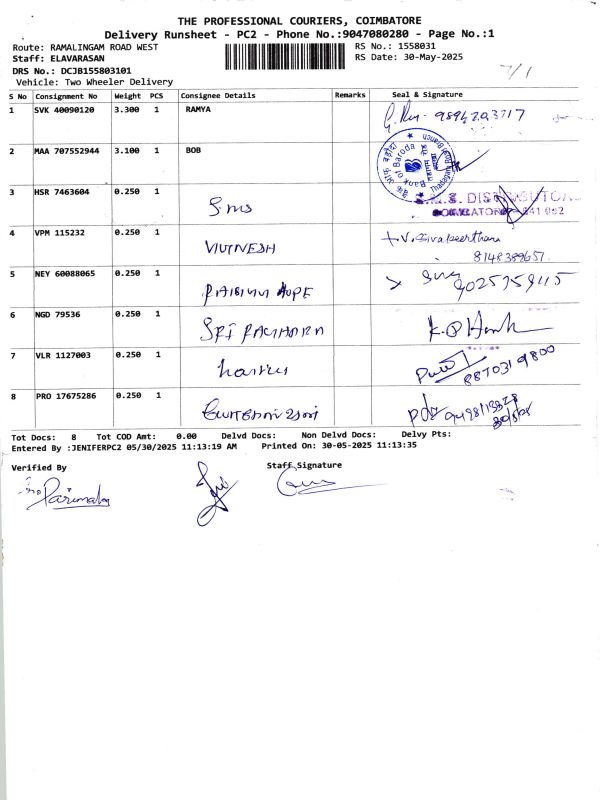 THE PROFESSIONAL COURIERS, COIMBATORE
Delivery Runsheet - PC2 - Phone No.:9047080280 - Page No.:1
Route: RAMALINGAM ROAD WEST
RS No.: 1558031
Staff: ELAVARASAN
RS Date: 30-May-2025
DRS No.: DCJB155803101
Vehicle: Two Wheeler Delivery
7/1
S No Consignment No Weight PCS Consignee Details Remarks Seal & Signature
1 SVK 40090120 3.300 1 RAMYA
2 MAA 707552944 3.100 1 BOB
Bank of Baroda
3 HSR 7463604 0.250 1 Sms
DISTRIBUTORS
4 VPM 115232 0.250 1 VIVINESH
8148389657
5 NEY 60088065 0.250 1 HOPE
9025759415
6 NGD 79536 0.250 1 SRI
7 VLR 1127003 0.250 1
8870319800
8 PRO 17675286 0.250 1
30/5/25
Tot Docs: 8 Tot COD Amt: 0.00 Delvd Docs: Non Delvd Docs: Delvy Pts:
Entered By :JENIFERPC2 05/30/2025 11:13:19 AM Printed On: 30-05-2025 11:13:35
Verified By
Staff Signature
Parimala